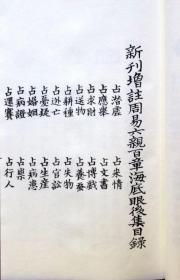 新刊增註周易六親百章海底眼後集目錄
占潛虛　占來情
占應舉　占文書
占求財　占博戲
占送物　占養蚕
占耕種　占失物
占逃亡　占官訟
占憂疑　占生產
占婚姻　占病患
占病證　占祟
占還賽　占行人